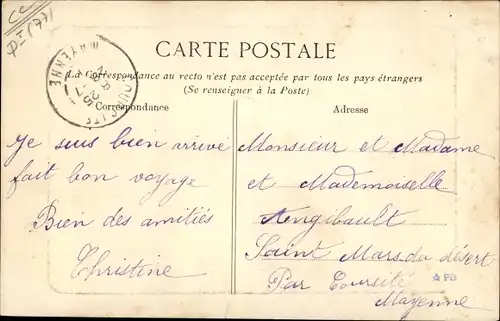 CC
CARTE POSTALE
La Correspondance au recto n'est pas acceptée par tous les pays étrangers
(Se renseigner à la Poste)
MAYENNE
Correspondance
Je suis bien arrivé
fait bon voyage
Bien des amitiés
Christine
Adresse
Monsieur et Madame
et Mademoiselle
Angibault
Saint Mars du désert
Par Coursité
Mayenne